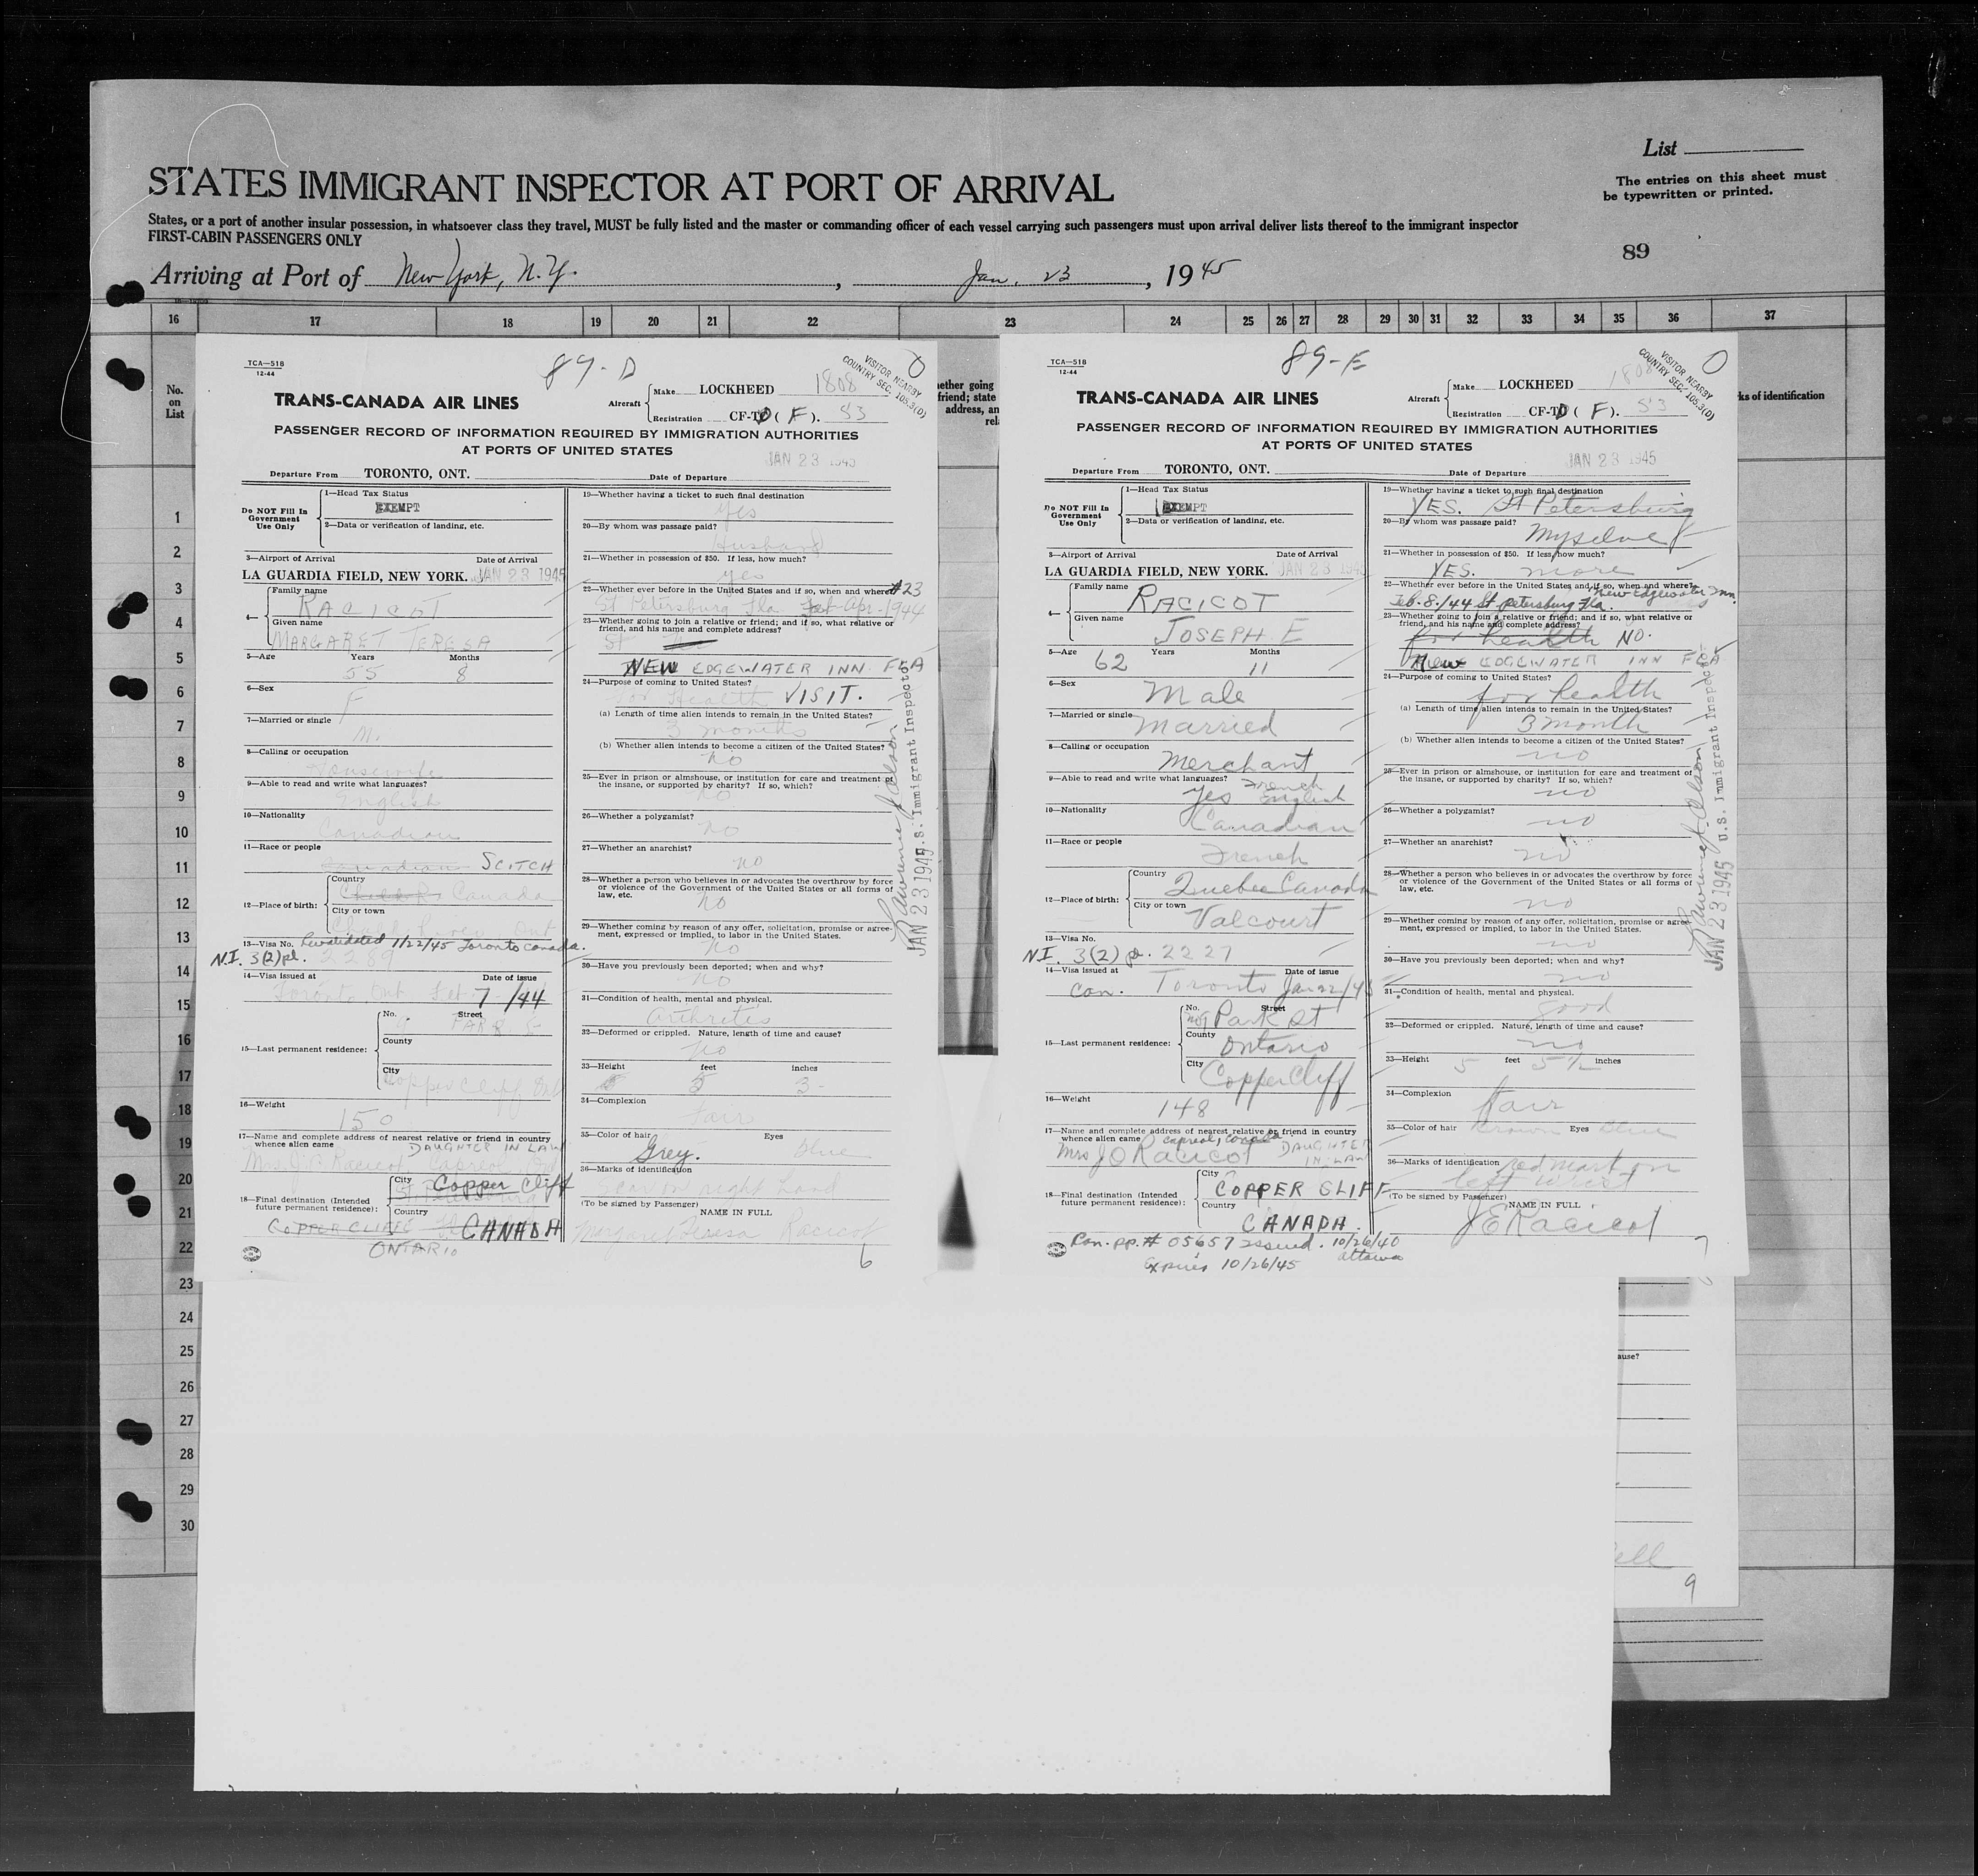 List
STATES IMMIGRANT INSPECTOR AT PORT OF ARRIVAL
The entries on this sheet must
be typewritten or printed.
States, or a port of another insular possession, in whatsoever class they travel, MUST be fully listed and the master or commanding officer of each vessel carrying such passengers must upon arrival deliver lists thereof to the immigrant inspector
FIRST-CABIN PASSENGERS ONLY
89
Arriving at Port of New York, N.Y., Jan. 23, 1945
16 17 18 19 20 21 22 23 24 25 26 27 28 29 30 31 32 33 34 35 36 37
No.
on
List
1
2
3
4
5
6
7
8
9
10
11
12
13
14
15
16
17
18
19
20
21
22
23
24
25
26
27
28
29
30
TCA—518
12-44
89-D
VISITOR NEARBY
COUNTRY SEC. 105.3(D)
TRANS-CANADA AIR LINES
Aircraft
Make LOCKHEED 1808
Registration CF-TD (F). 53
PASSENGER RECORD OF INFORMATION REQUIRED BY IMMIGRATION AUTHORITIES
AT PORTS OF UNITED STATES
Departure From TORONTO, ONT.
Date of Departure JAN 23 1945
Do NOT Fill In
Government
Use Only
1—Head Tax Status
EXEMPT
2—Data or verification of landing, etc.
3—Airport of Arrival Date of Arrival
LA GUARDIA FIELD, NEW YORK. JAN 23 1945
4—
Family name
RACICOT
Given name
MARGARET TERESA
5—Age Years Months
55 8
6—Sex
F
7—Married or single
M.
8—Calling or occupation
Housewife
9—Able to read and write what languages?
English
10—Nationality
Canadian
11—Race or people
Canadian SCITCH
12—Place of birth:
Country
Canada
City or town
Ont
13—Visa No. Revalidated 1/22/45 Toronto Canada.
N.I. 3(2) pl. 2289
14—Visa issued at Date of issue
Toronto, Ont Feb 7/44
15—Last permanent residence:
No. Street
9 PARK S
County
City
Copper Cliff Ont
16—Weight
150
17—Name and complete address of nearest relative or friend in country
whence alien came DAUGHTER IN LAW
Mrs J. Racicot, Capreol, Ont
18—Final destination (Intended
future permanent residence):
City Copper Cliff
St Petersburg
Country
COPPER CLIFF CANADA
ONTARIO
19—Whether having a ticket to such final destination
Yes
20—By whom was passage paid?
Husband
21—Whether in possession of $50. If less, how much?
yes
22—Whether ever before in the United States and if so, when and where? #23
St Petersburg Fla Feb-Apr-1944
23—Whether going to join a relative or friend; and if so, what relative or
friend, and his name and complete address?
St
NEW EDGEWATER INN FLA
24—Purpose of coming to United States?
Health VISIT.
(a) Length of time alien intends to remain in the United States?
3 months
(b) Whether alien intends to become a citizen of the United States?
no
25—Ever in prison or almshouse, or institution for care and treatment of
the insane, or supported by charity? If so, which?
no
26—Whether a polygamist?
no
27—Whether an anarchist?
no
28—Whether a person who believes in or advocates the overthrow by force
or violence of the Government of the United States or all forms of
law, etc.
no
29—Whether coming by reason of any offer, solicitation, promise or agree-
ment, expressed or implied, to labor in the United States.
no
30—Have you previously been deported; when and why?
no
31—Condition of health, mental and physical.
arthrites
32—Deformed or crippled. Nature, length of time and cause?
no
33—Height feet inches
5 3
34—Complexion
Fair
35—Color of hair Eyes
Grey. blue
36—Marks of identification
Scar on right hand
(To be signed by Passenger) NAME IN FULL
Margaret Teresa Racicot
6
JAN 23 1945 U.S. Immigrant Inspector
TCA—518
12-44
89-E
VISITOR NEARBY
COUNTRY SEC. 105.3(D)
TRANS-CANADA AIR LINES
Aircraft
Make LOCKHEED 1808
Registration CF-TD (F). 53
PASSENGER RECORD OF INFORMATION REQUIRED BY IMMIGRATION AUTHORITIES
AT PORTS OF UNITED STATES
Departure From TORONTO, ONT.
Date of Departure JAN 23 1945
Do NOT Fill In
Government
Use Only
1—Head Tax Status
EXEMPT
2—Data or verification of landing, etc.
3—Airport of Arrival Date of Arrival
LA GUARDIA FIELD, NEW YORK. JAN 23 1945
4—
Family name
RACICOT
Given name
JOSEPH E
5—Age Years Months
62 11
6—Sex
Male
7—Married or single
Married
8—Calling or occupation
Merchant
9—Able to read and write what languages?
yes French English
10—Nationality
Canadian
11—Race or people
French
12—Place of birth:
Country
Quebec Canada
City or town
Valcourt
13—Visa No.
N.I. 3(2) pl. 2227
14—Visa issued at Date of issue
Con. Toronto Jan 22/45
15—Last permanent residence:
No. Street
Park St
County
Ontario
City
Copper Cliff
16—Weight
148
17—Name and complete address of nearest relative or friend in country
whence alien came Capreol, Canada
Mrs J O Racicot DAUGHTER IN LAW
18—Final destination (Intended
future permanent residence):
City
COPPER CLIFF
Country
CANADA.
Can. pp. # 05657 issued. 10/26/40
Ottawa
Expires 10/26/45
19—Whether having a ticket to such final destination
YES. St Petersburg
20—By whom was passage paid?
Myselve
21—Whether in possession of $50. If less, how much?
YES. more
22—Whether ever before in the United States and if so, when and where?
Feb. 8./44 St Petersburg Fla. New Edgewater Inn.
23—Whether going to join a relative or friend; and if so, what relative or
friend, and his name and complete address?
for health NO.
New EDGEWATER INN FLA
24—Purpose of coming to United States?
for health
(a) Length of time alien intends to remain in the United States?
3 month
(b) Whether alien intends to become a citizen of the United States?
no
25—Ever in prison or almshouse, or institution for care and treatment of
the insane, or supported by charity? If so, which?
no
26—Whether a polygamist?
no
27—Whether an anarchist?
no
28—Whether a person who believes in or advocates the overthrow by force
or violence of the Government of the United States or all forms of
law, etc.
no
29—Whether coming by reason of any offer, solicitation, promise or agree-
ment, expressed or implied, to labor in the United States.
no
30—Have you previously been deported; when and why?
no
31—Condition of health, mental and physical.
good
32—Deformed or crippled. Nature, length of time and cause?
no
33—Height 5 feet 5 1/2 inches
34—Complexion
fair
35—Color of hair Brown Eyes Blue
36—Marks of identification red mark on
left wrist
(To be signed by Passenger) NAME IN FULL
J E Racicot
7
JAN 23 1945 U.S. Immigrant Inspector
ks of identification
ause?
ell
9